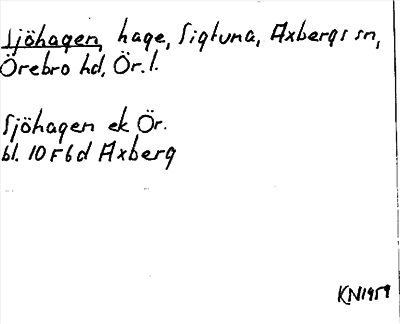 Sjöhagen, hage, Sigtuna, Axbergs sn,
Örebro hd, Ör. l.
Sjöhagen ek Ör.
bl. 10 F 6 d Axberg
KN1959